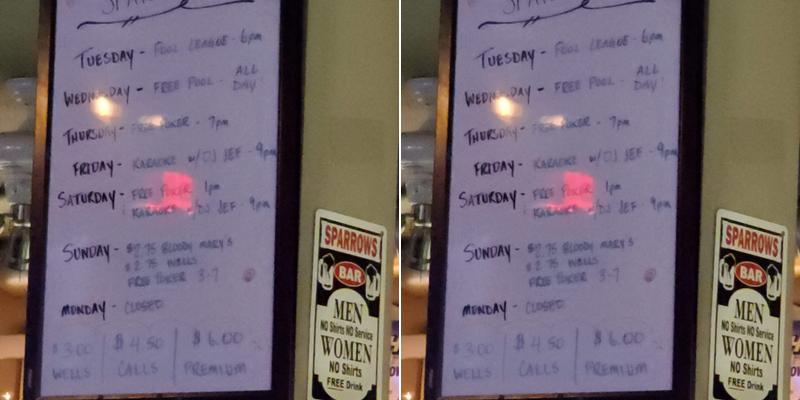 TUESDAY - POOL LEAGUE - 6pm
WEDNESDAY - FREE POOL - ALL DAY
THURSDAY - FREE POKER - 7pm
FRIDAY - KARAOKE w/DJ JEF - 9pm
SATURDAY - FREE POKER 1pm
KARAOKE w/DJ JEF - 9pm
SUNDAY - $2.75 BLOODY MARY'S
$2.75 WELLS
FREE POKER 3-7
MONDAY - CLOSED
$3.00 WELLS
$4.50 CALLS
$6.00 PREMIUM
SPARROWS
BAR
MEN
NO Shirts NO Service
WOMEN
NO Shirts
FREE Drink
TUESDAY - POOL LEAGUE - 6pm
WEDNESDAY - FREE POOL - ALL DAY
THURSDAY - FREE POKER - 7pm
FRIDAY - KARAOKE w/DJ JEF - 9pm
SATURDAY - FREE POKER 1pm
KARAOKE w/DJ JEF - 9pm
SUNDAY - $2.75 BLOODY MARY'S
$2.75 WELLS
FREE POKER 3-7
MONDAY - CLOSED
$3.00 WELLS
$4.50 CALLS
$6.00 PREMIUM
SPARROWS
BAR
MEN
NO Shirts NO Service
WOMEN
NO Shirts
FREE Drink